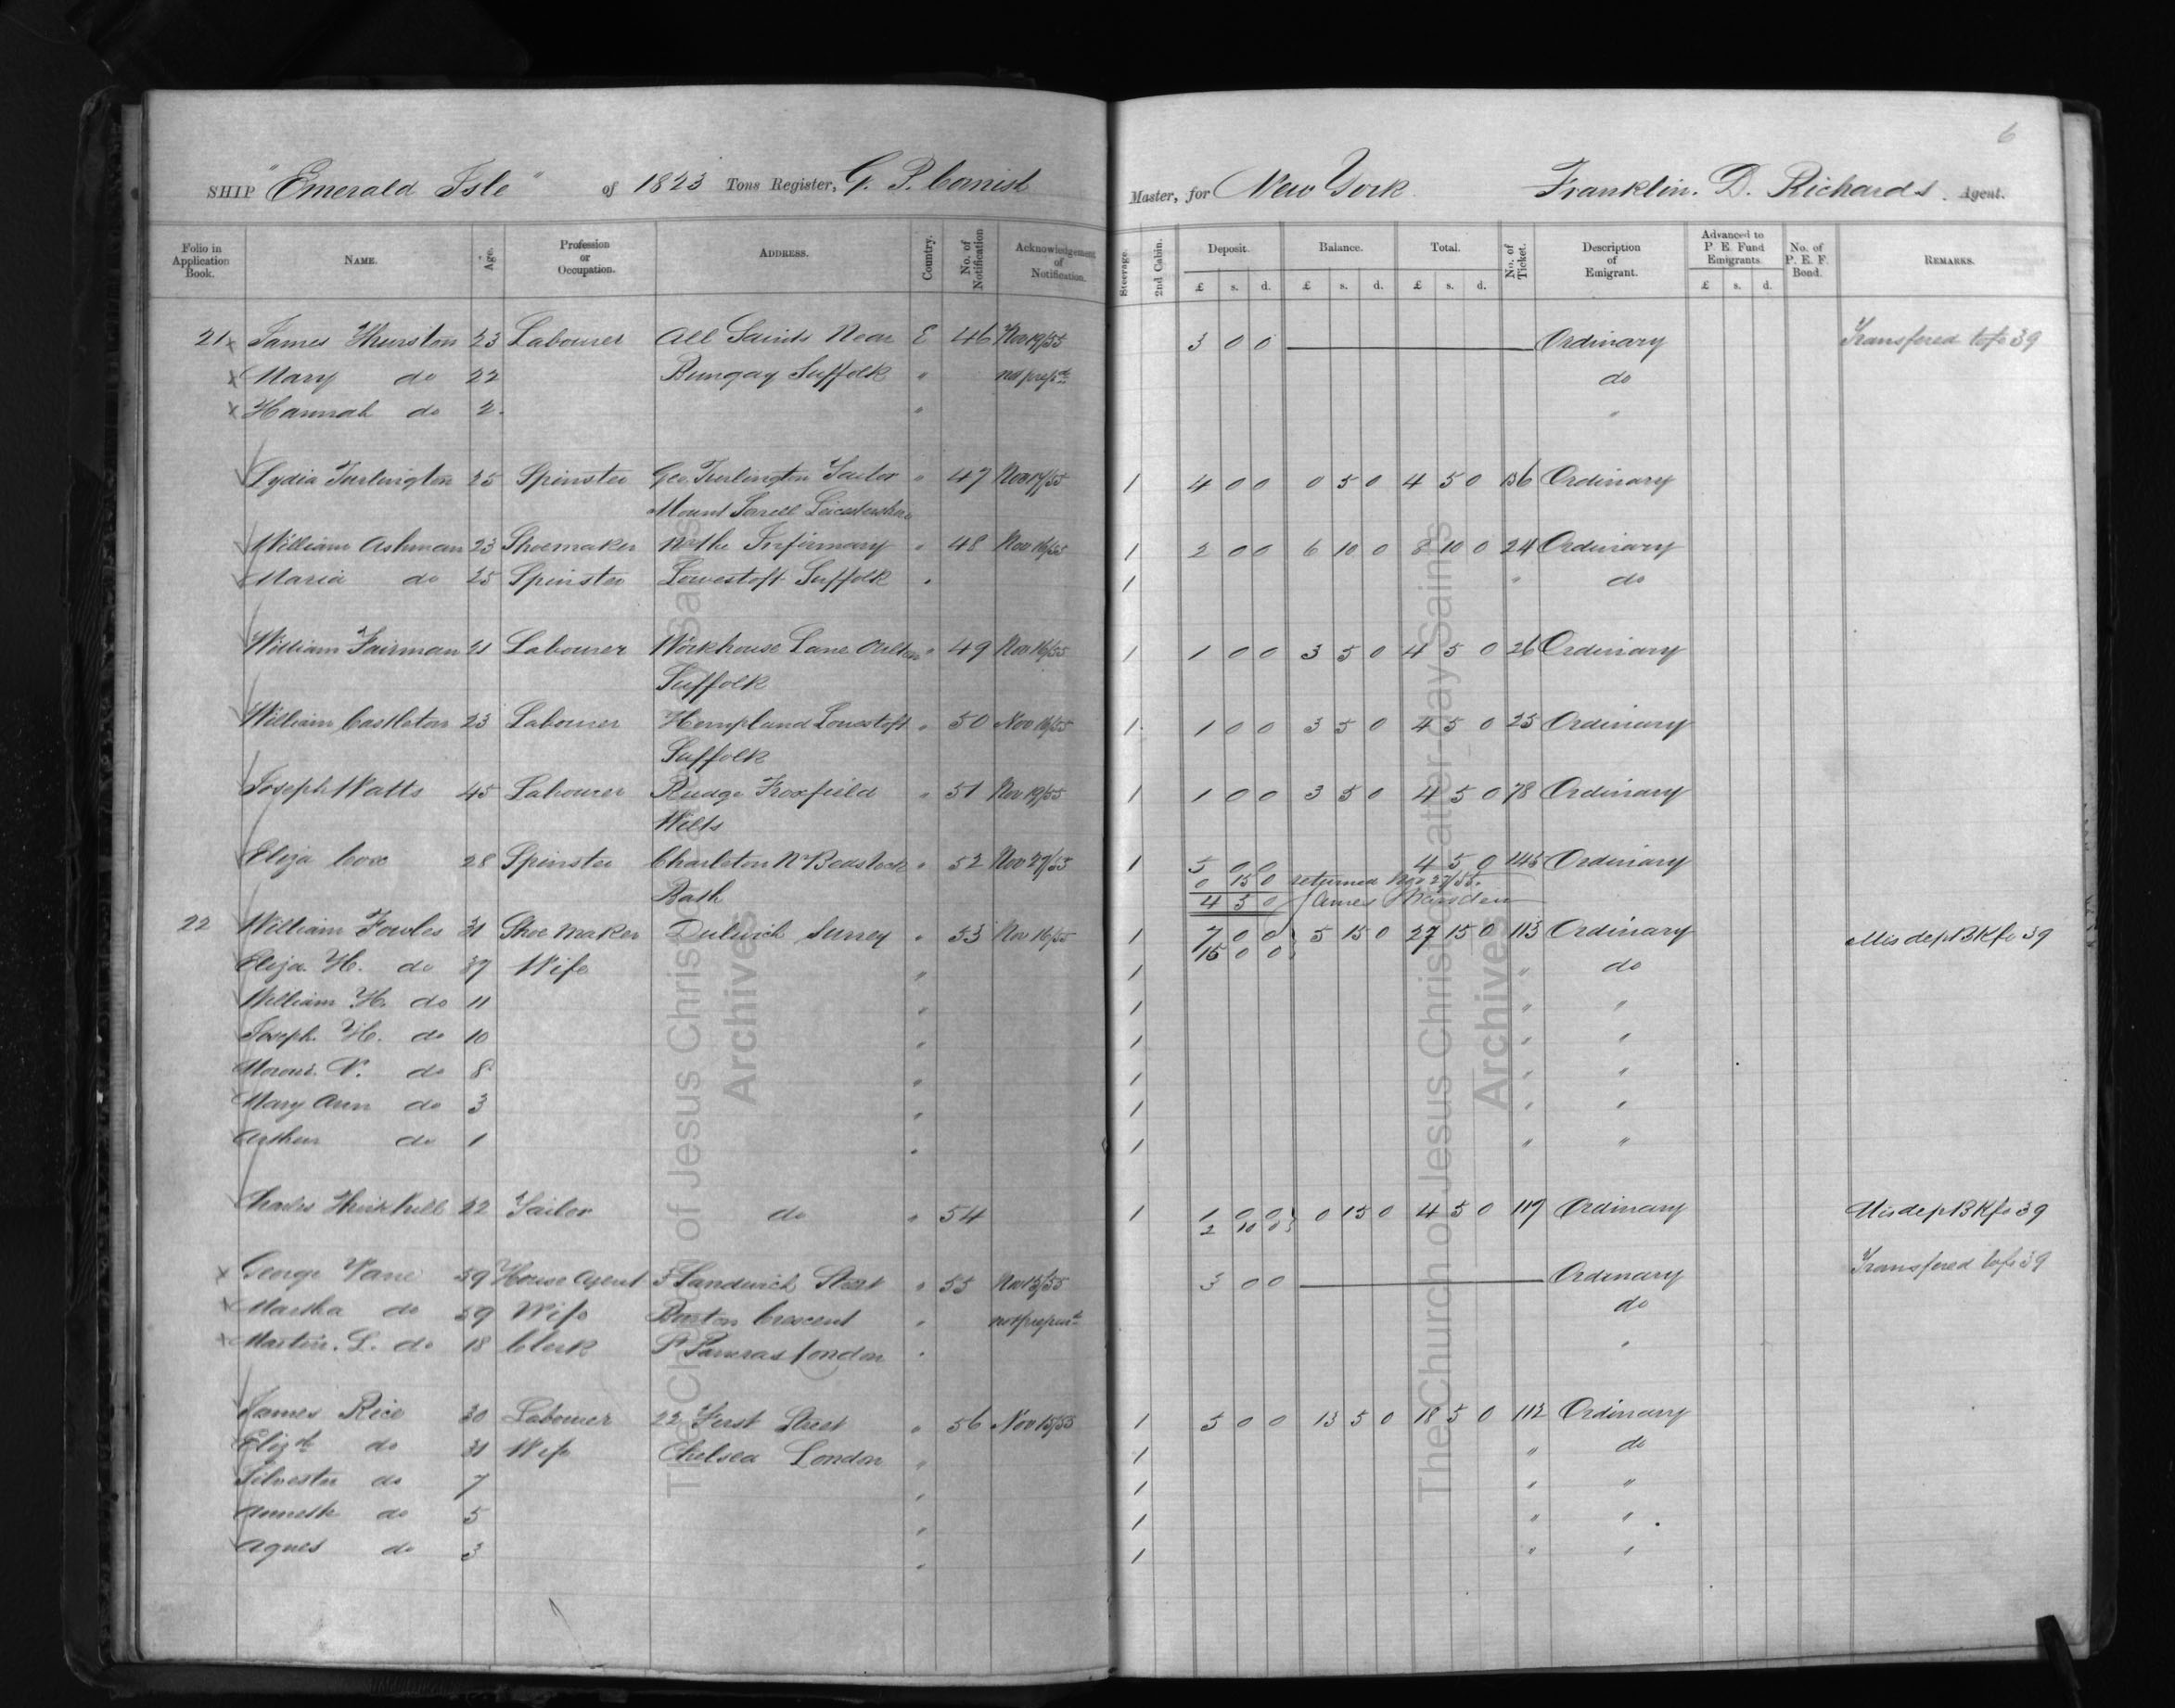 6
SHIP "Emerald Isle" of 1823 Tons Register, G. P. Cornish Master, for New York Franklin. D. Richards. Agent.
Folio in Application Book. NAME. Age. Profession or Occupation. ADDRESS. Country. No. of Notification Acknowledgement of Notification. Steerage. 2nd Cabin. Deposit. £ s. d. Balance. £ s. d. Total. £ s. d. No. of Ticket. Description of Emigrant. Advanced to P. E. Fund Emigrants. £ s. d. No. of P. E. F. Bond. REMARKS.
21 x James Thurston 23 Labourer All Saints Near E 46 Nov 19/55 3 0 0 Ordinary Transfered to fo 39
x Mary do 22 Bungay Suffolk " do
x Hannah do 2 " "
Lydia Turlington 25 Spinster Geo. Turlington Tailor " 47 Nov 17/55 1 4 0 0 0 5 0 4 5 0 136 Ordinary
Mount Sorell Leicestershire
William Ashman 23 Shoemaker Nr the Infirmary " 48 Nov 16/55 1 2 0 0 6 10 0 8 10 0 24 Ordinary
Maria do 25 Spinster Lowestoft Suffolk " 1 " do
William Fairman 21 Labourer Workhouse Lane " 49 Nov 16/55 1 1 0 0 3 5 0 4 5 0 26 Ordinary
Suffolk
William Castleton 23 Labourer Hempland Lowestoft " 50 Nov 16/55 1 1 0 0 3 5 0 4 5 0 25 Ordinary
Suffolk
Joseph Watts 45 Labourer Rudge Froxfield " 51 Nov 19/55 1 1 0 0 3 5 0 4 5 0 78 Ordinary
Wilts
Eliza Cox 28 Spinster Charlton Nr Radstock " 52 Nov 27/55 1 5 0 0 4 5 0 145 Ordinary
0 15 0 returned Nov 27/55.
Bath 4 5 0 James Marsden
22 William Fowles 31 Shoe Maker Dulwich Surrey " 53 Nov 16/55 1 7 0 0 5 15 0 27 15 0 113 Ordinary Mis dept B K fo 39
15 0 0
Eliza. H. do 37 Wife " 1 " do
William H. do 11 " 1 " "
Joseph. H. do 10 " 1 " "
Moroni. V. do 8 " 1 " "
Mary Ann do 3 " 1 " "
Arthur do 1 " 1 " "
Charles 22 Tailor do " 54 1 1 0 0 0 15 0 4 5 0 119 Ordinary Mis dept B K fo 39
2 10 0
x George Vane 59 House Agent 5 Sandwich Street " 55 Nov 15/55 3 0 0 Ordinary Transfered to fo 39
x Martha do 59 Wife Burton Crescent " do
x Martin. L. do 18 Clerk St Pancras London " "
James Rice 30 Labourer 22 First Street " 56 Nov 15/55 1 5 0 0 13 5 0 18 5 0 112 Ordinary
Elizth do 31 Wife Chelsea London " 1 " do
Silvester do 7 " 1 " "
Annette do 5 " 1 " "
Agnes do 3 " 1 " "
The Church of Jesus Christ of Latter-day Saints
Archives
The Church of Jesus Christ of Latter-day Saints
Archives